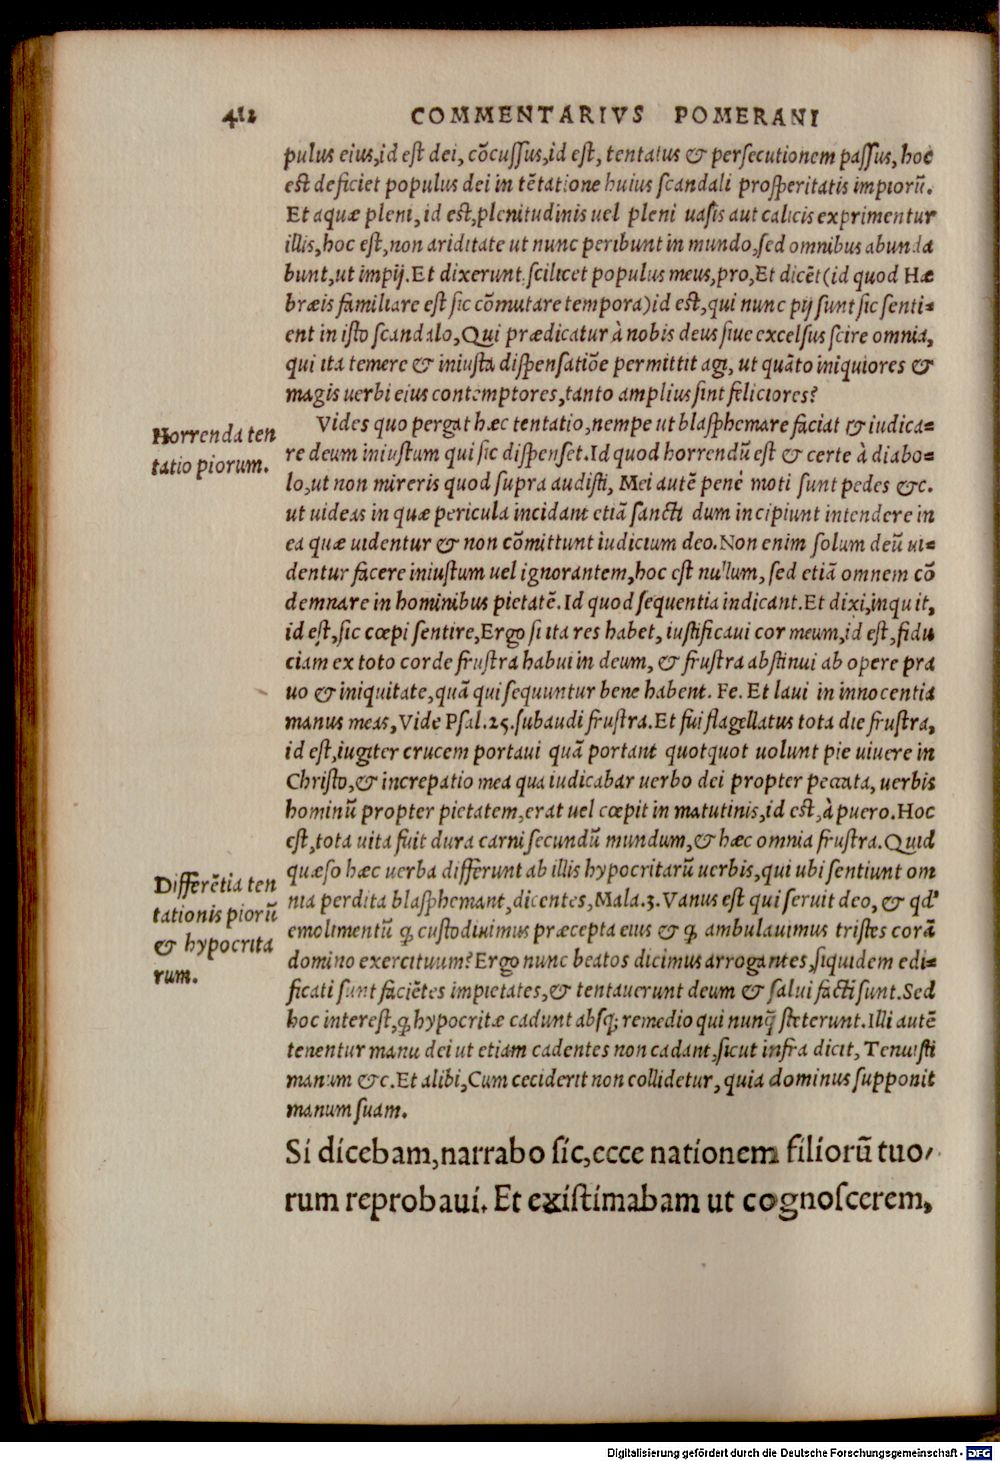 412 COMMENTARIVS POMERANI
pulus eius,id est dei, cōcussus,id est, tentatus & persecutionem passus, hoc
est deficiet populus dei in tētatione huius scandali prosperitatis impiorū.
Et aquæ pleni, id est,plenitudinis uel pleni uasis aut calicis exprimentur
illis,hoc est,non ariditate ut nunc peribunt in mundo,sed omnibus abunda
bunt,ut impij.Et dixerunt,scilicet populus meus,pro,Et dicēt(id quod Hæ
bræis familiare est sic cōmutare tempora)id est,qui nunc pij sunt sic senti=
ent in isto scandalo,Qui prædicatur à nobis deus siue excelsus scire omnia,
qui ita temere & iniusta dispensatiōe permittit agi, ut quāto iniquiores &
magis uerbi eius contemptores,tanto amplius sint feliciores?
Vides quo pergat hæc tentatio,nempe ut blasphemare faciat & iudica=
Horrenda ten
tatio piorum.
re deum iniustum qui sic dispenset.Id quod horrendū est & certe à diabo=
lo,ut non mireris quod supra audisti, Mei autē penè moti sunt pedes &c.
ut uideas in quæ pericula incidant etiā sancti dum incipiunt intendere in
ea quæ uidentur & non cōmittunt iudicium deo.Non enim solum deū ui=
dentur facere iniustum uel ignorantem,hoc est nullum, sed etiā omnem cō
demnare in hominibus pietatē.Id quod sequentia indicant.Et dixi,inquit,
id est,sic cœpi sentire,Ergo si ita res habet, iustificaui cor meum,id est,fidu
ciam ex toto corde frustra habui in deum, & frustra abstinui ab opere pra
uo & iniquitate,quā qui sequuntur bene habent. Fe. Et laui in innocentia
manus meas, Vide Psal.25.subaudi frustra.Et fui flagellatus tota die frustra,
id est,iugiter crucem portaui quā portant quotquot uolunt pie uiuere in
Christo,& increpatio mea qua iudicabar uerbo dei propter peccata, uerbis
hominū propter pietatem,erat uel cœpit in matutinis,id est,à puero.Hoc
est,tota uita fuit dura carni secundū mundum,& hæc omnia frustra.Quid
quæso hæc uerba differunt ab illis hypocritarū uerbis,qui ubi sentiunt om
Differētia ten
tationis piorū
& hypocrita
rum.
nia perdita blasphemant,dicentes,Mala.3. Vanus est qui seruit deo, & qd'
emolimentū ꝙ custodiuimus præcepta eius & ꝙ ambulauimus tristes corā
domino exercituum? Ergo nunc beatos dicimus arrogantes,siquidem edi=
ficati sunt faciētes impietates,& tentauerunt deum & salui facti sunt.Sed
hoc interest,ꝙ hypocritæ cadunt absq; remedio qui nunq̄ steterunt.Illi autē
tenentur manu dei ut etiam cadentes non cadant,sicut infra dicit, Tenuisti
manum &c.Et alibi,Cum ceciderit non collidetur, quia dominus supponit
manum suam.
Si dicebam,narrabo sic,ecce nationem filiorū tuo/
rum reprobaui. Et existimabam ut cognoscerem,
Digitalisierung gefördert durch die Deutsche Forschungsgemeinschaft - DFG